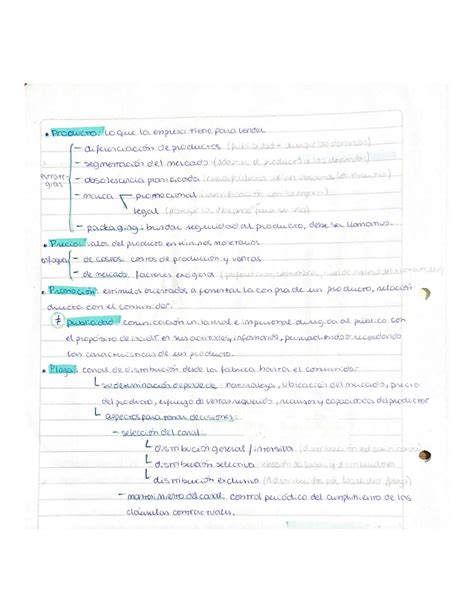 • Producto: lo que la empresa tiene para vender
- diferenciación de productos (publicidad +
- segmentación del mercado (
estrate-
gias
- obsolescencia planificada
- marca promocional (identificación con la imagen)
legal (
- packaging: brindar seguridad al producto, debe ser llamativo.
• Precio: valor del producto en términos monetarios
enfoques - de costos: costos de producción y ventas
- de mercado: factores exógenos (
• Promoción: estímulos orientados a fomentar la compra de un producto, relación
directa con el consumidor.
≠ publicidad: comunicación unilateral e impersonal dirigida al público con
el propósito de incidir en sus actitudes, informando, persuadiendo o recordando
las características de un producto.
• Plaza: canal de distribución desde la fábrica hasta el consumidor
su determinación depende de: naturaleza, ubicación del mercado, precio
del producto, esfuerzo de ventas requeridos, recursos y capacidades del productor
aspectos para tomar decisiones:
- selección del canal:
distribución general / intensiva (
distribución selectiva: elección de lugares y distribuidores
distribución exclusiva (
- mantenimiento del canal: control periódico del cumplimiento de las
cláusulas contractuales.